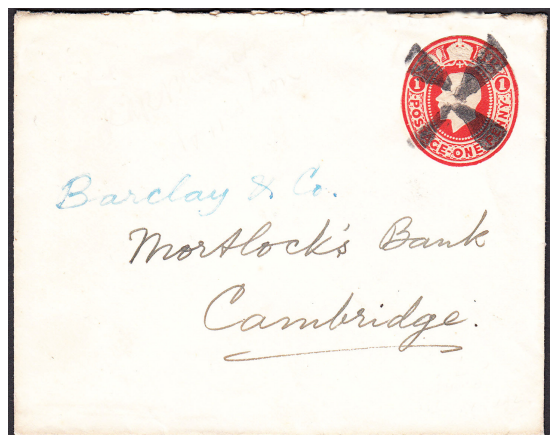 1 POSTAGE·ONE PENNY 1
Barclay & Co.
Mortlock's Bank
Cambridge.